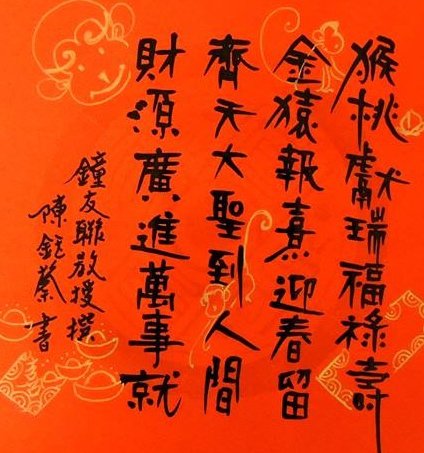 猴桃獻瑞福祿壽
金猿報熹迎春留
齊天大聖到人間
財源廣進萬事就
鐘友聯教授撰
陳鈺蔡書